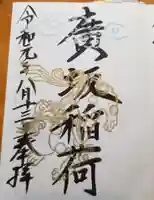 廣坂稲荷
令和元年八月十三日奉拝